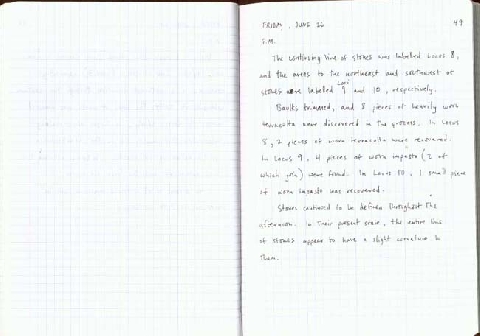 FRIDAY, JUNE 26 49
S.M.
The continuing line of stones was labelled Locus 8,
and the areas to the northeast and southwest of
Loci
stones were labeled 9 and 10, respectively.
Baulks trimmed, and 8 pieces of heavily worn
terracotta were discovered in the process. In Locus
5, 2 pieces of worn terracotta were recovered.
In Locus 9, 4 pieces of worn impasto (2 of
which join) were found. In Locus 10, 1 small piece
of worn impasto was recovered.
Stones continued to be defined throughout the
afternoon. In their present state, the entire line
of stones appear to have a slight curvature to
them.